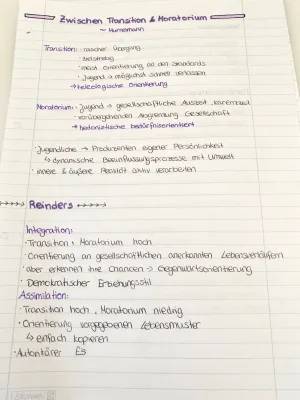 Zwischen Transition & Moratorium
~ Hurrelmann
Transition: · rascher Übergang
· zielstrebig
· meist Orientierung an den Standards
· Jugend → möglichst schnell verlassen
→ teleologische Orientierung
Moratorium: · Jugend → gesellschaftliche Auszeit, Karenzzeit
· vorübergehenden Ausgliederung Gesellschaft
→ hedonistische bedürfnisorientiert
· Jugendliche → Produzenten eigener Persönlichkeit
↳ dynamische Beeinflussungsprozesse mit Umwelt
· innere & äußere Realität aktiv verarbeiten
Reinders
Integration:
· Transition & Moratorium hoch
· Orientierung an gesellschaftlichen anerkannten Lebensverläufern
· aber erkennen ihre Chancen → Gegenwartsorientierung
· Demokratischer Erziehungsstil
Assimilation:
· Transition hoch, Moratorium niedrig
· Orientierung vorgegebenen Lebensmuster
↳ einfach kopieren
· Autoritärer Es